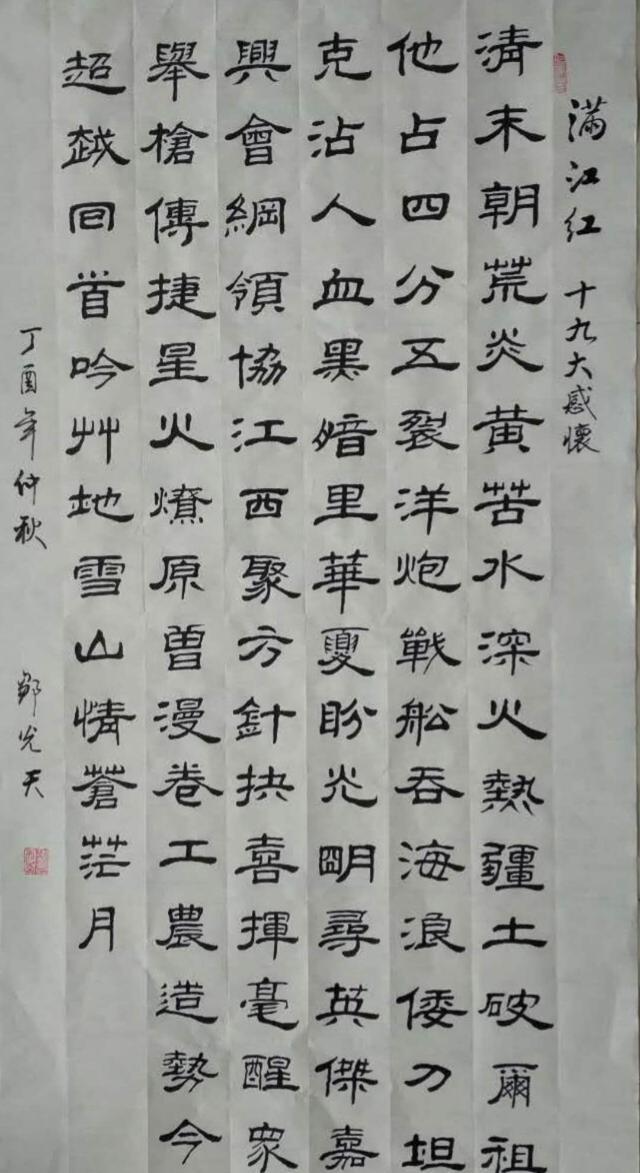 满江红 十九大感怀
清末朝荒炎黄苦水深火熱疆土破爾祖
他占四分五裂洋炮戰船吞海浪倭刀坦
克沾人血黑暗里華夏盼光明尋英傑嘉
興會綱領協江西聚方針抉喜揮毫醒眾
舉槍傳捷星火燎原曾漫卷工農造勢今
超越回首吟艸地雪山情蒼茫月
丁酉年仲秋
鄒光天